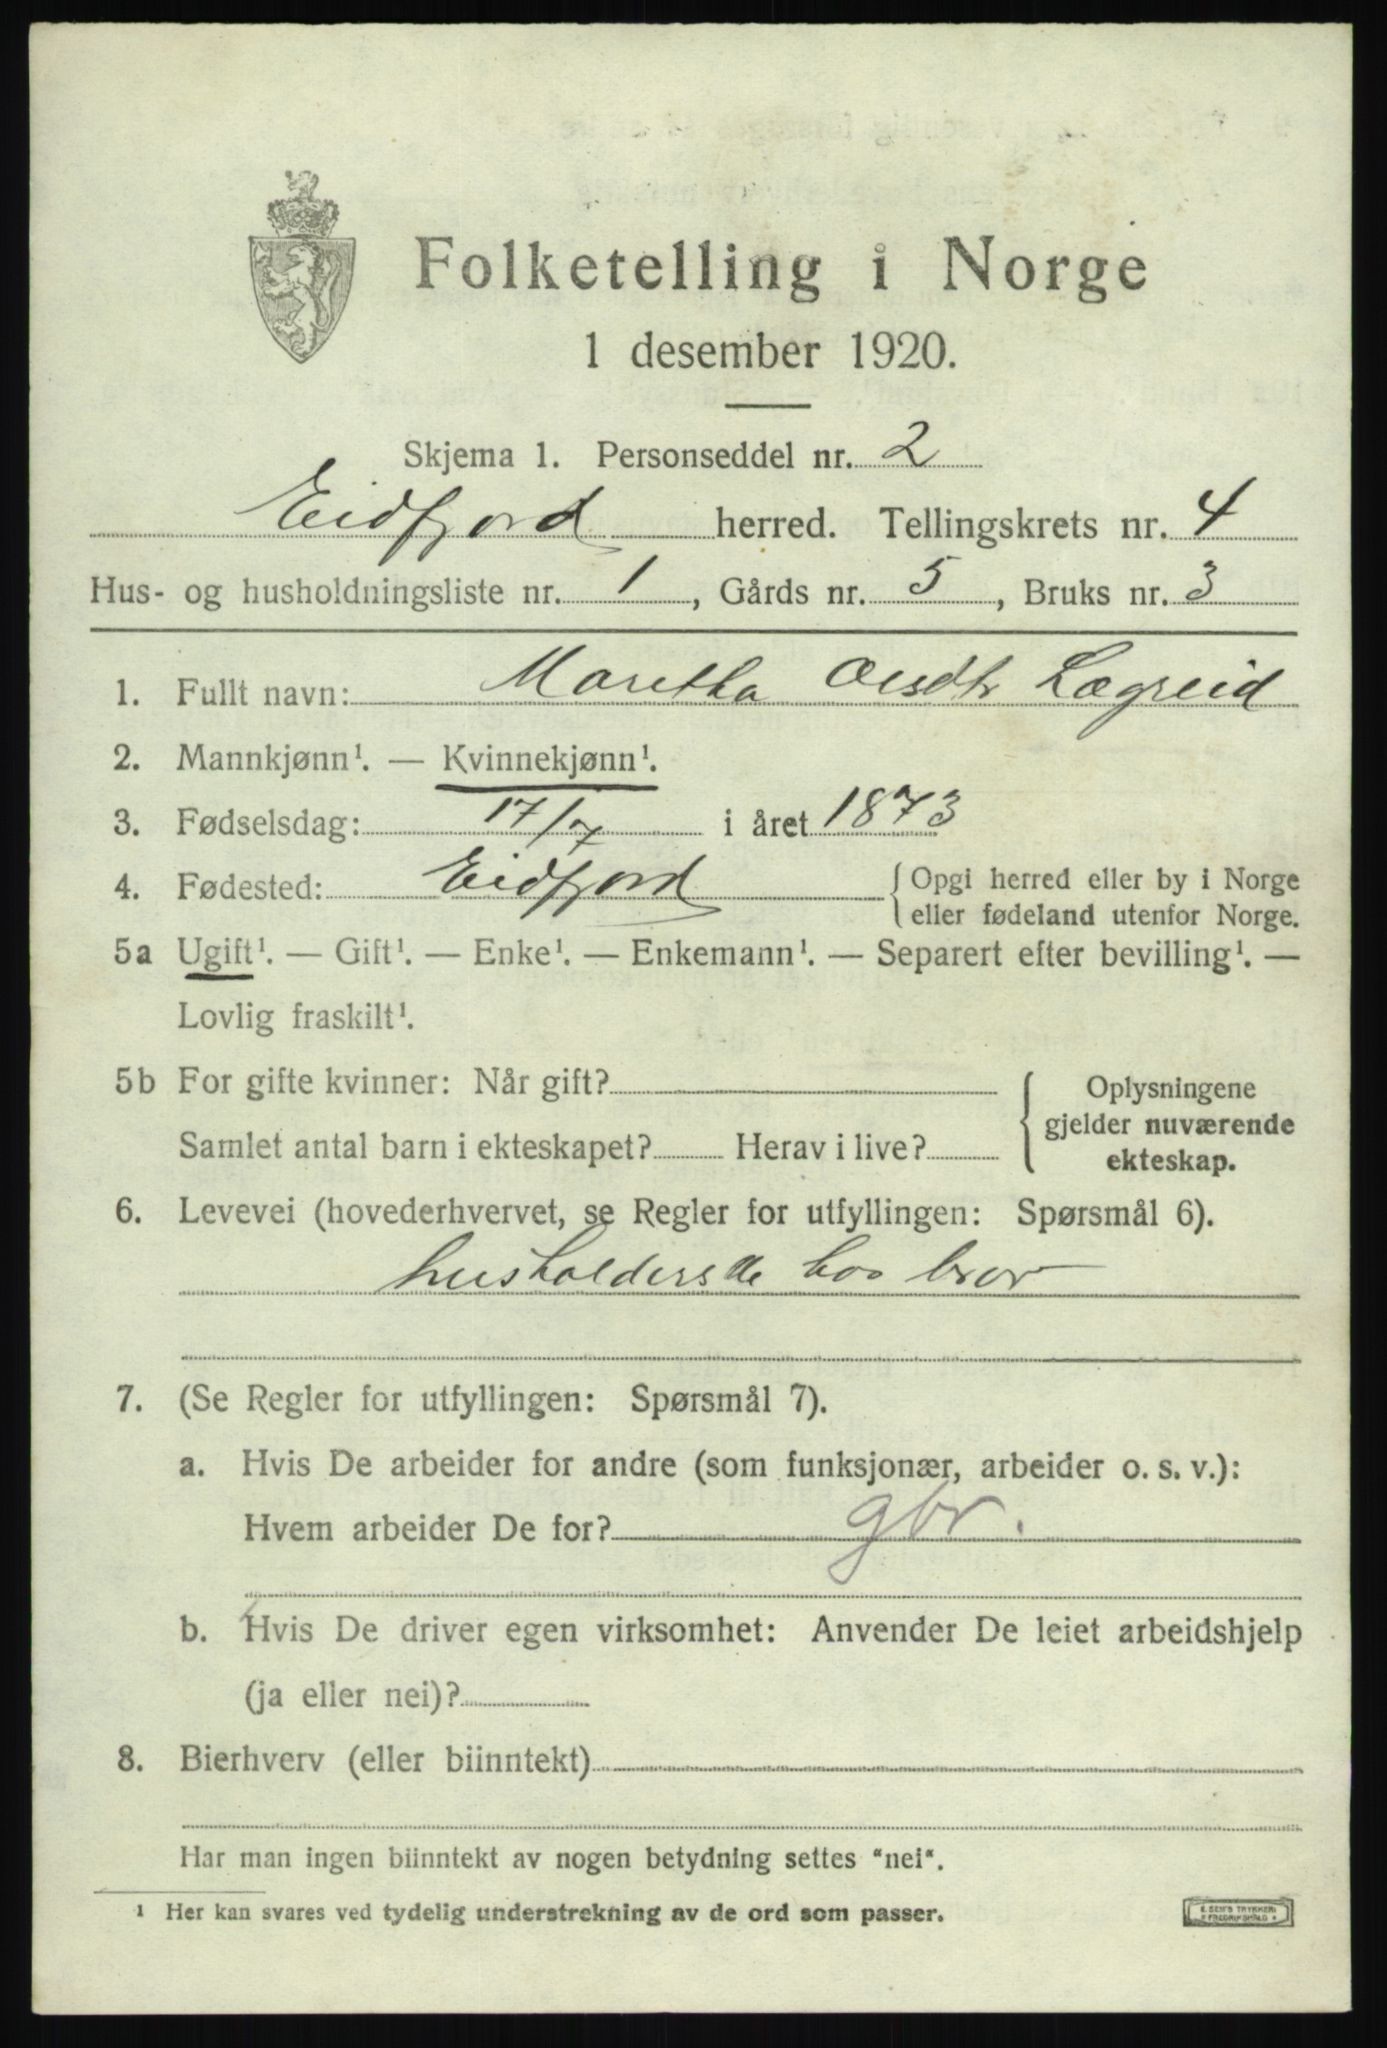 Folketelling i Norge
1 desember 1920.
Skjema 1. Personseddel nr. 2
Eidfjord herred. Tellingskrets nr. 4
Hus- og husholdningsliste nr. 1, Gårds nr. 5, Bruks nr. 3
1. Fullt navn: Maritha Olsdtr Lægreid
2. Mannkjønn¹. — Kvinnekjønn¹.
3. Fødselsdag: 17/7 i året 1873
4. Fødested: Eidfjord { Opgi herred eller by i Norge
eller fødeland utenfor Norge.
5a Ugift¹. — Gift¹. — Enke¹. — Enkemann¹. — Separert efter bevilling¹. —
Lovlig fraskilt¹.
5b For gifte kvinner: Når gift? { Oplysningene
gjelder nuværende
Samlet antal barn i ekteskapet? Herav i live?
ekteskap.
6. Levevei (hovederhvervet, se Regler for utfyllingen: Spørsmål 6).
husholderske hos bror
7. (Se Regler for utfyllingen: Spørsmål 7).
a. Hvis De arbeider for andre (som funksjonær, arbeider o. s. v.):
Hvem arbeider De for? gbr.
b. Hvis De driver egen virksomhet: Anvender De leiet arbeidshjelp
(ja eller nei)?
8. Bierhverv (eller biinntekt)
Har man ingen biinntekt av nogen betydning settes "nei".
¹ Her kan svares ved tydelig understrekning av de ord som passer.
E. SEM'S TRYKKERI
FREDRIKSHALD